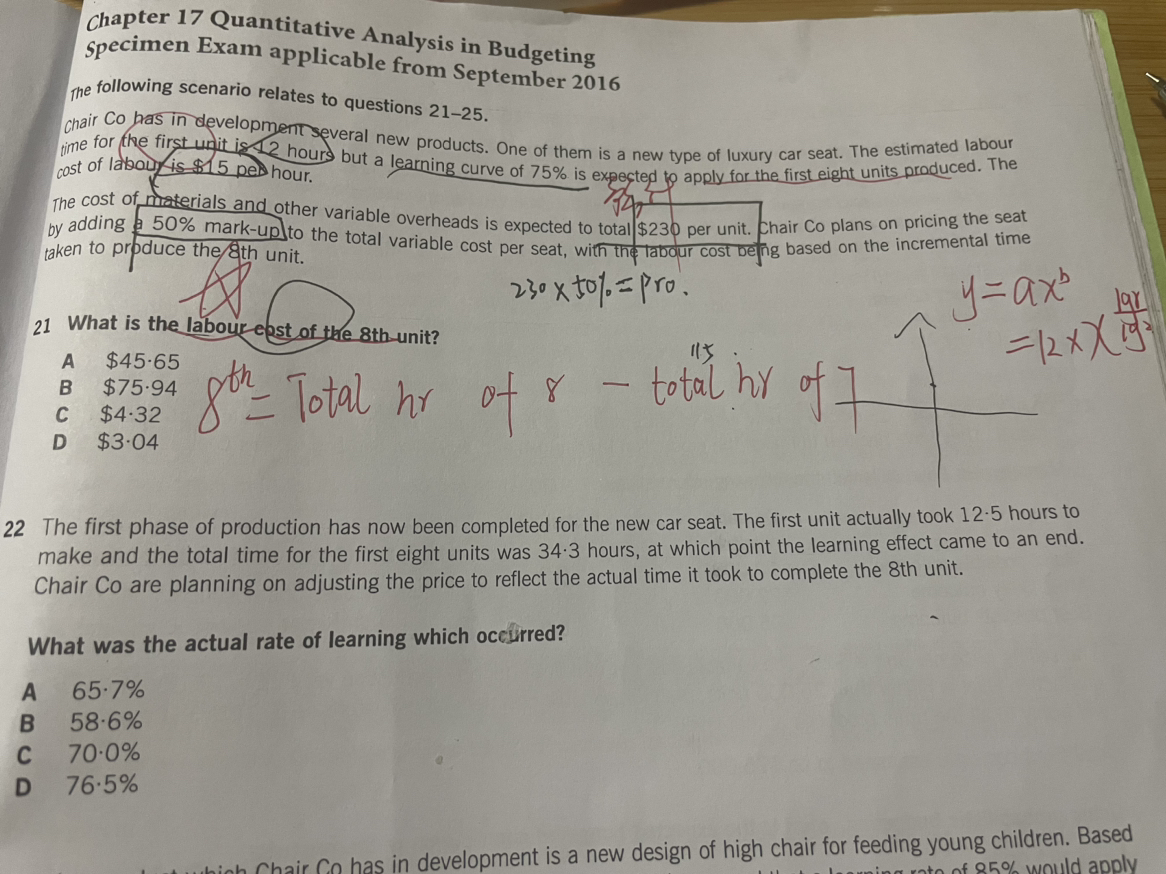 Chapter 17 Quantitative Analysis in Budgeting
Specimen Exam applicable from September 2016
The following scenario relates to questions 21–25.
Chair Co has in development several new products. One of them is a new type of luxury car seat. The estimated labour
time for the first unit is 12 hours but a learning curve of 75% is expected to apply for the first eight units produced. The
cost of labour is $15 per hour.
The cost of materials and other variable overheads is expected to total $230 per unit. Chair Co plans on pricing the seat
by adding a 50% mark-up to the total variable cost per seat, with the labour cost being based on the incremental time
taken to produce the 8th unit.
230 × 50% = pro.
y = ax^b
= 12 ×
21 What is the labour cost of the 8th unit?
A $45·65
B $75·94
C $4·32
D $3·04
115
8th = Total hr of 8 – total hr of 7
22 The first phase of production has now been completed for the new car seat. The first unit actually took 12·5 hours to
make and the total time for the first eight units was 34·3 hours, at which point the learning effect came to an end.
Chair Co are planning on adjusting the price to reflect the actual time it took to complete the 8th unit.
What was the actual rate of learning which occurred?
A 65·7%
B 58·6%
C 70·0%
D 76·5%
which Chair Co has in development is a new design of high chair for feeding young children. Based
rate of 85% would apply